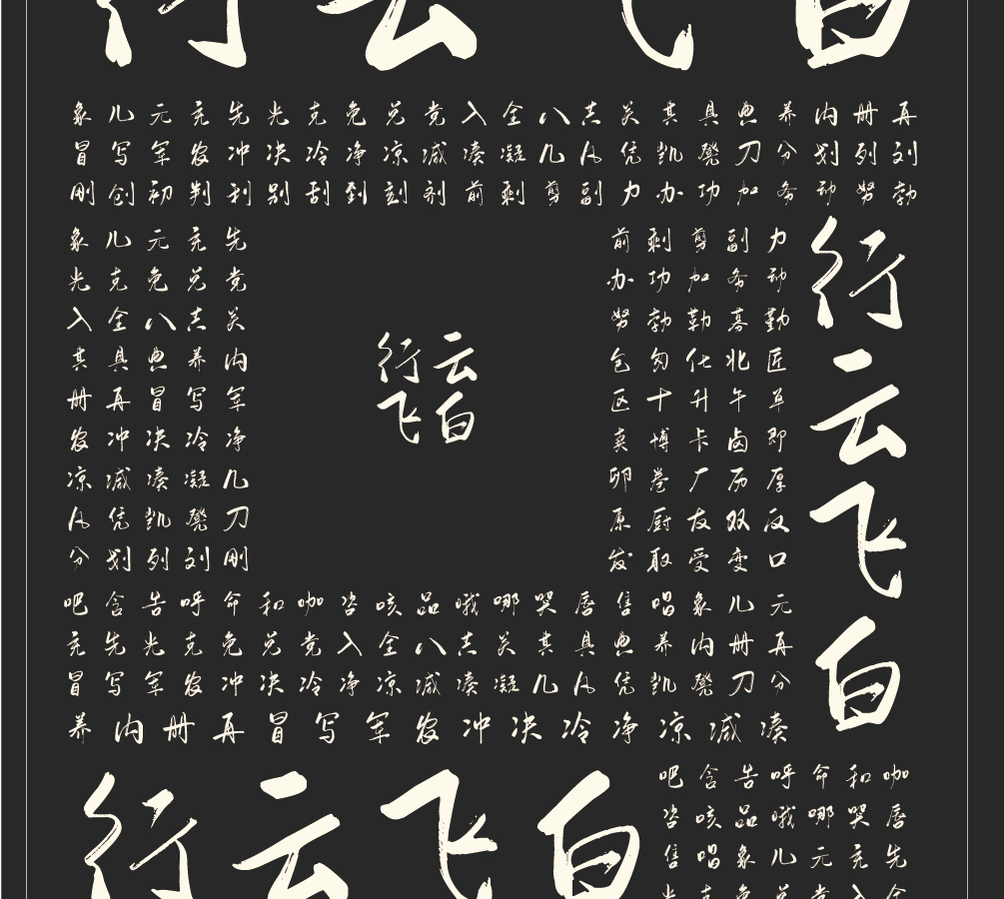 行云飞白
象儿元充先光克免兑党入全八共关其具典养内册再
冒写军农冲决冷净凉减凑凝几凡凭凯凳刀分划列刘
刚创初判利别刮到刻剂前剩剪副力办功加务劲努勃
象儿元充先
光克免兑党
入全八共关
其具典养内
册再冒写军
农冲决冷净
凉减凑凝几
凡凭凯凳刀
分划列刘刚
行云
飞白
前剩剪副力
办功加务劲
努勃勒募勤
包匆化北匠
区十升午卓
卖博卡卤即
卵卷厂历厚
原厨友双反
发取受变口
行云飞白
吧含告呼命和咖咨咳品哦哪哭唇售唱象儿元
充先光克免兑党入全八共关其具典养内册再
冒写军农冲决冷净凉减凑凝几凡凭凯凳刀分
养内册再冒写军农冲决冷净凉减凑
行云飞白
吧含告呼命和咖
咨咳品哦哪哭唇
售唱象儿元充先
光克免兑党入全